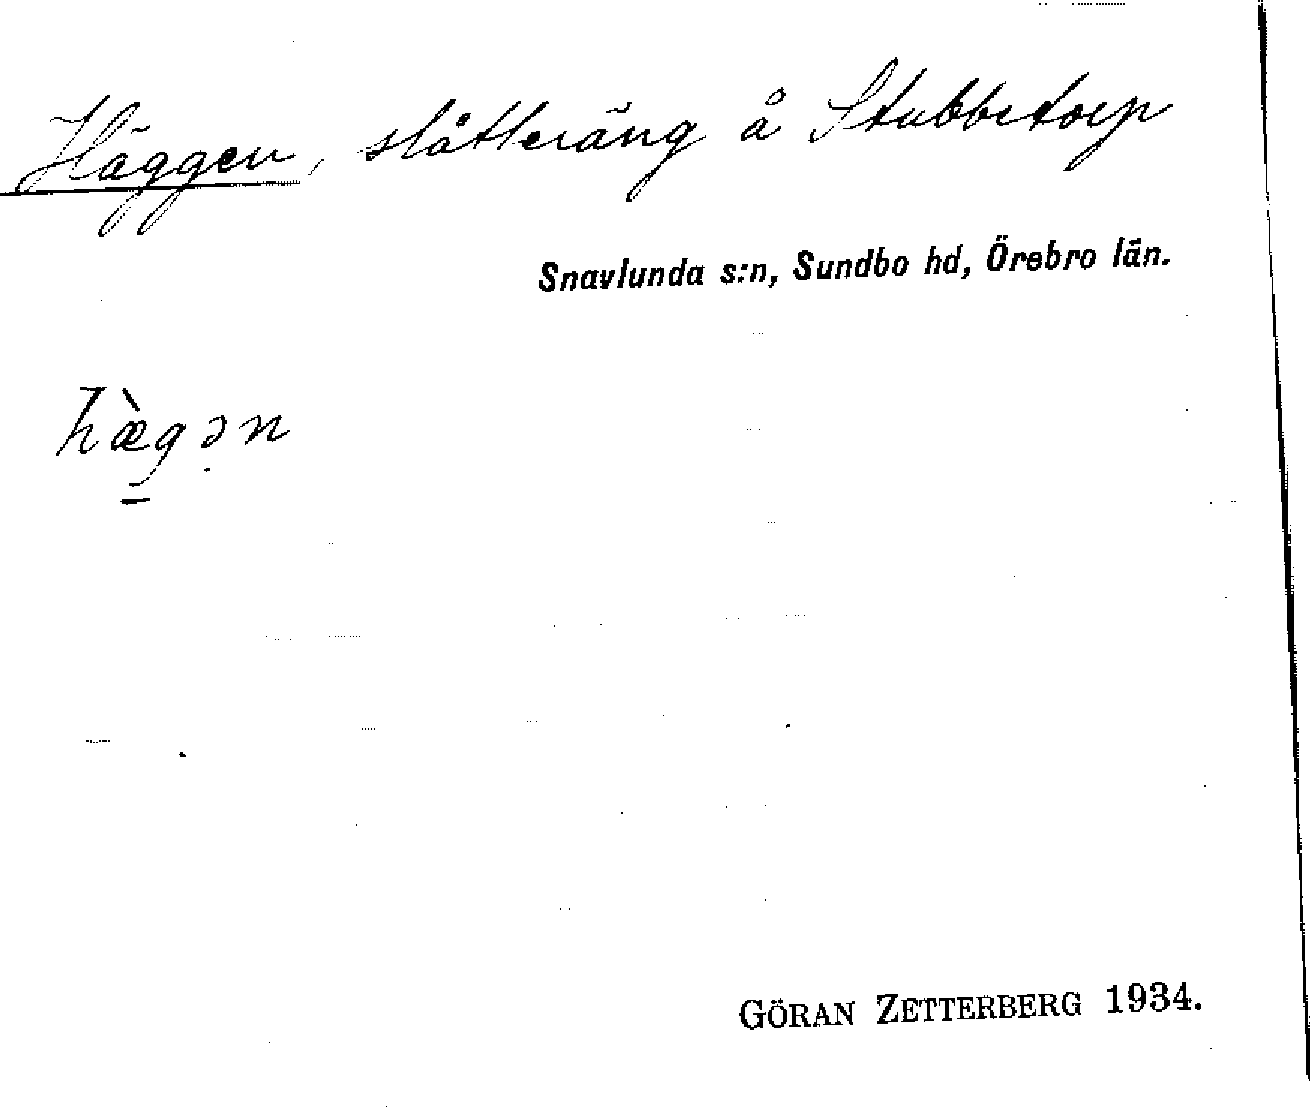 Häggen, slåtteräng å Stubbetorp
Snavlunda s:n, Sundbo hd, Örebro län.
hæ̀g̱ə̣n
GÖRAN ZETTERBERG 1934.